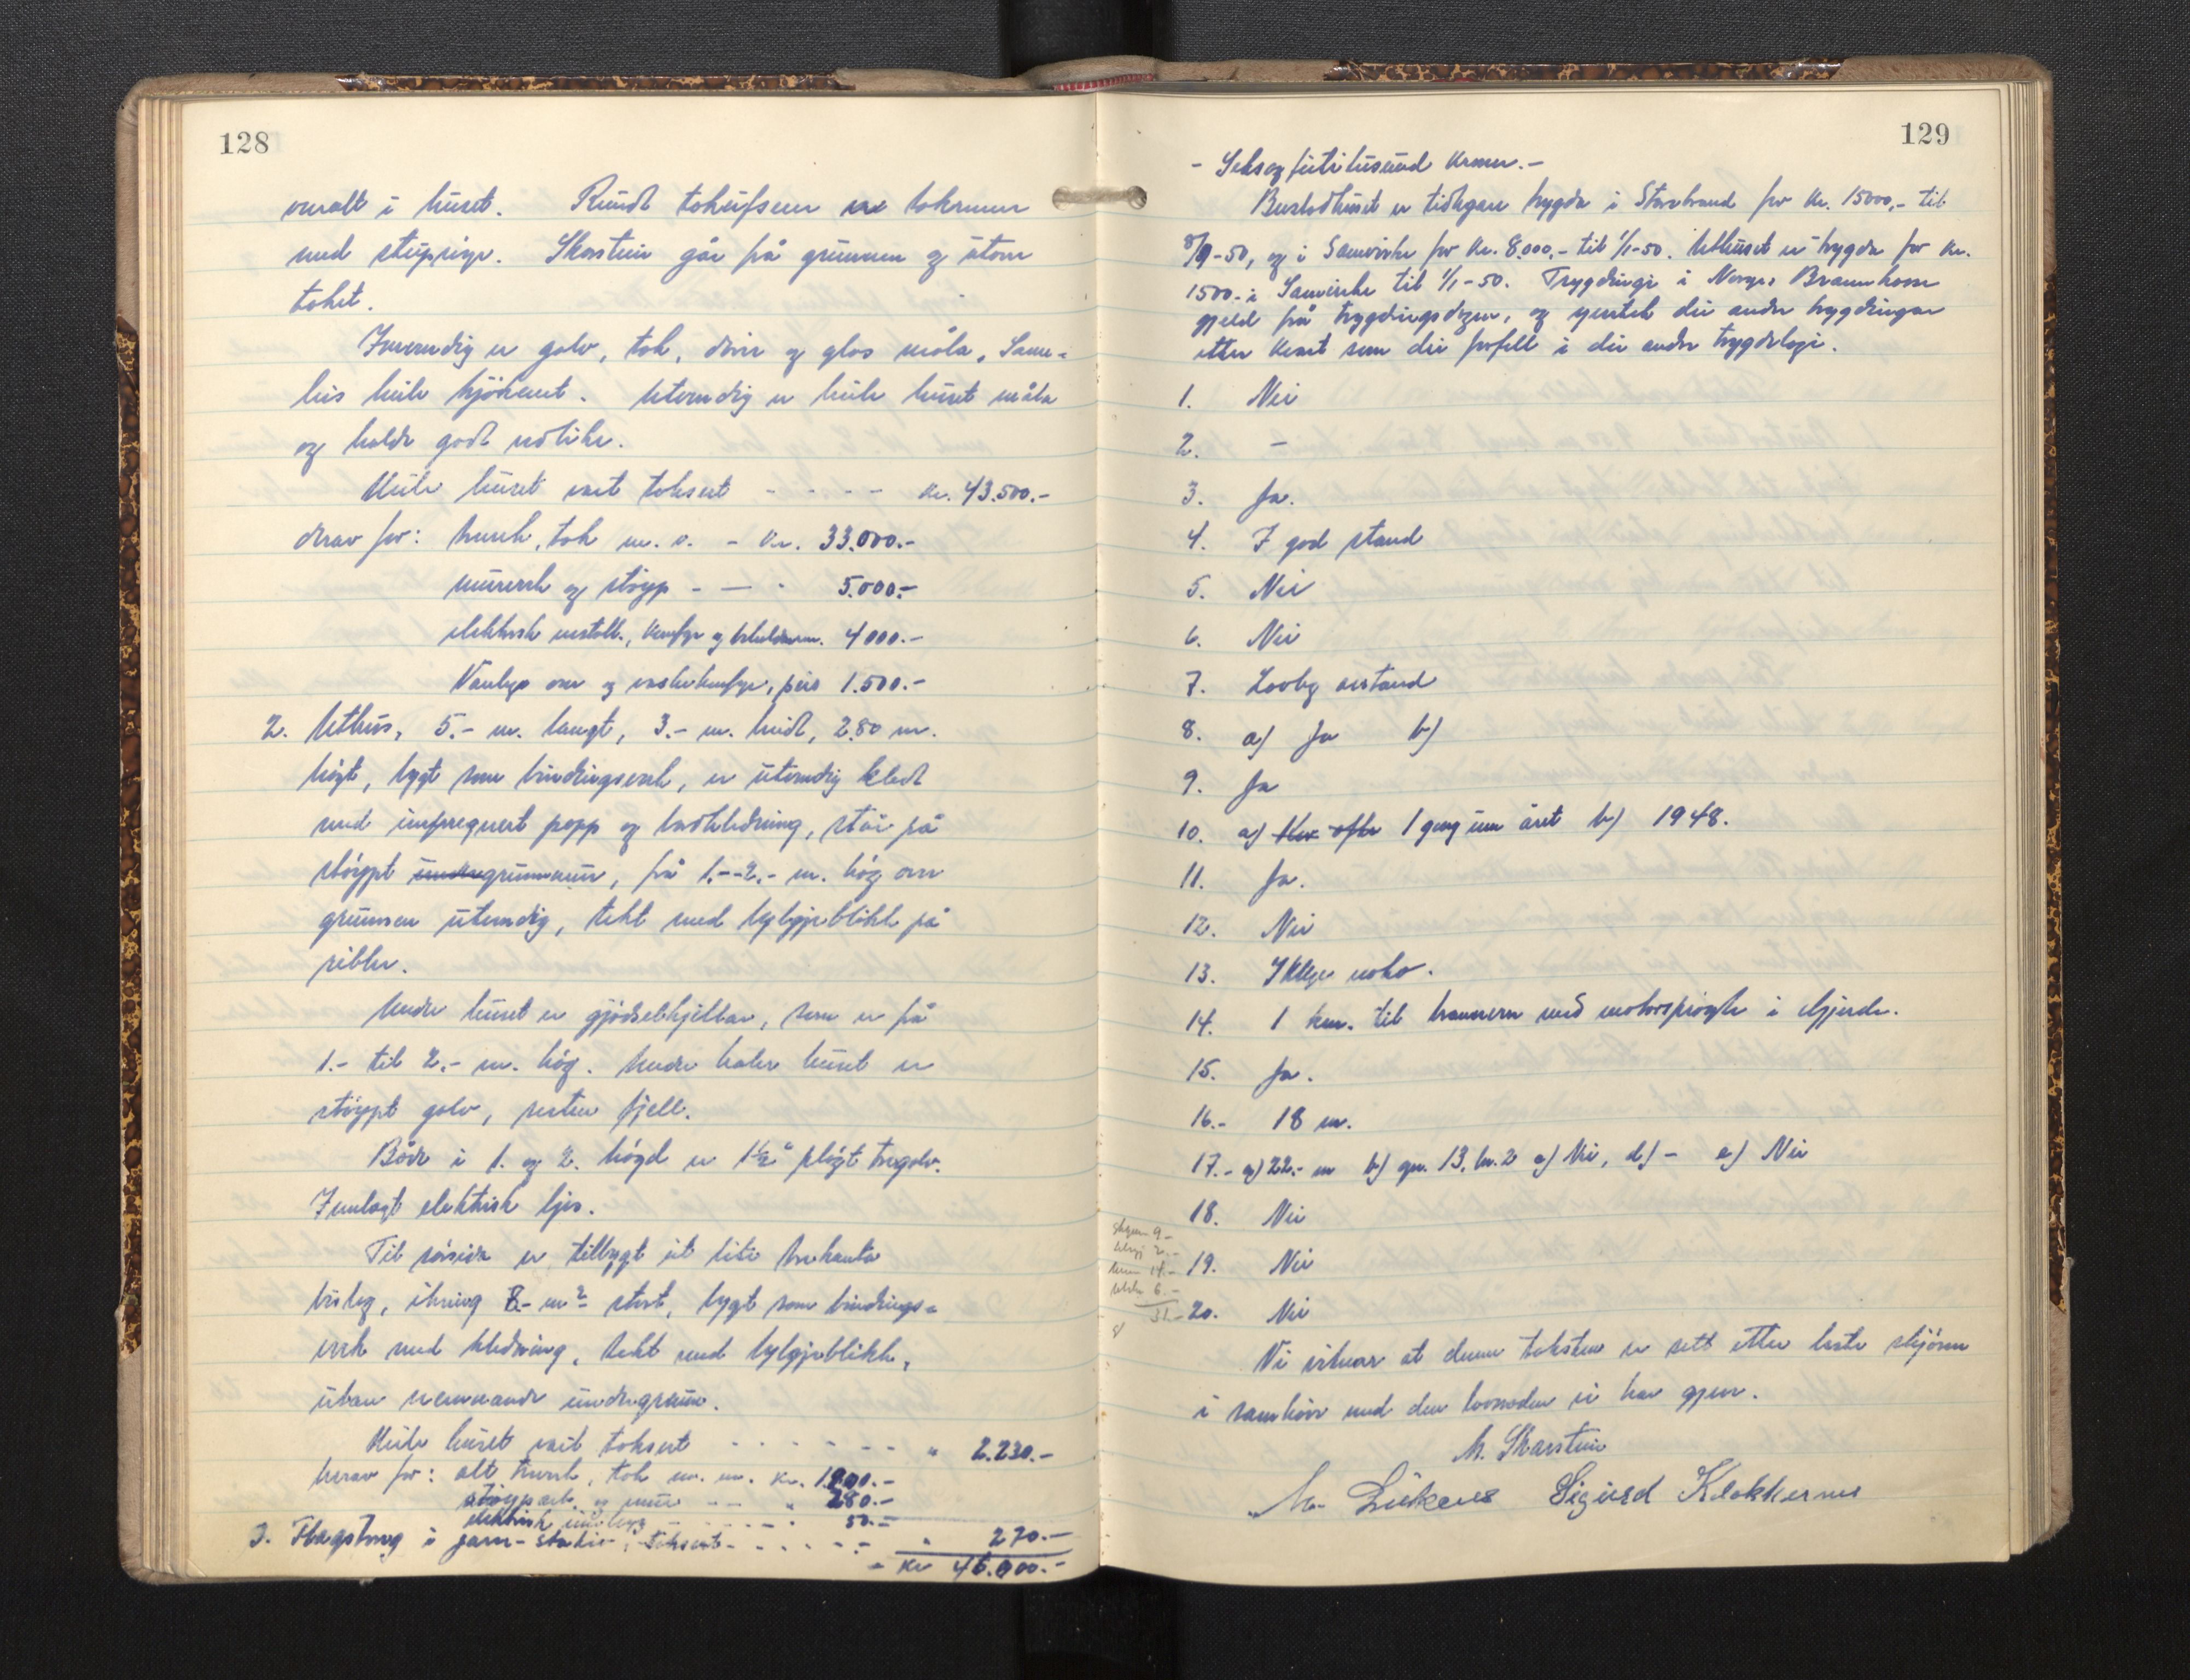 128
overalt i huset. Rundt tokufsen er tokrenner
med stuprøyr. Skorstein går frå grunnen og utom
toket.
Innvendig er golv, tok, dører og glas måla. Same-
leis heile kjøkenet. Utvendig er heile huset måla
og halde godt vedlike.
Heile huset vart taksert - - - - kr. 43.500.-
derav for: treverk, tok m. v. - kr. 33.000.-
murverk og støyp - — - 5.000.-
elektrisk install., komfyr og 4000.-
Vanlege omn og vaskekomfyr, peis 1.500.-
2. Uthus, 5.- m. langt, 3.- m. breidt, 2.80 m.
høgt, bygt som bindingsverk, er utvendig kledt
med impregnert papp og bordkledning, står på
støypt grunnmur, frå 1.--2.- m. høg over
grunnen utvendig, tekt med bylgjeblikk på
ribber.
Under huset er gjødselkjellar, som er frå
1.- til 2.- m. høg. Under halve huset er
støypt golv, resten fjell.
Både i 1. og 2. høgd er 1½" pløgt tregolv.
Innlagt elektrisk ljos.
Til sørsida er tilbygt eit lite trekanta
bislag, ikring 8.- m² stort, bygt som bindings-
verk med kledning, tekt med bylgjeblikk,
utan nemnande undergrunn.
Heile huset vart taksert - - - - - - " 2.230.-
herav for: alt treverk, tok m. m. kr. 1900.-
støyparb. og mur - - " 280.-
elektrisk innlegg - - - - - 50.-
3. Flagstong i jarn-stativ, taksert - - - - - " 270.-
- Kr 46.000.-
129
- Seksogførtitusund kroner.-
Bustadhuset er tidlegare trygda i Storebrand for kr. 15000,- til
8/9-50, og i Samvirke for kr. 8.000,- til 1/1-50. Uthuset er trygda for kr.
1500.- i Samvirke til 1/1-50. Trygdinga i Norges Brannkasse
gjeld frå trygdingsdagen, og yverteke dei andre trygdingar
etter kvart som dei forfell i dei andre trygdelag.
1. Nei
2. -
3. Ja.
4. I god stand
5. Nei
6. Nei
7. Lovleg avstand
8. a) Ja b)
9. Ja
10. a) Kor ofte 1 gong um året b) 1948.
11. Ja.
12. Nei
13. Ikkje noko.
14. 1 km. til brannvern med motorsprøyte i
15. Ja.
16.- 18 m.
17.- a) 22.- m b) gnr. 13, br. 2 c) Nei, d) - e) Nei
18. Nei
19. Nei
20. Nei
Vi vitnar at denne taksten er sett etter beste skjøn
i samhøve med den lovnaden vi har gjeve.
M. Skarstein
Sigurd Klokkernes